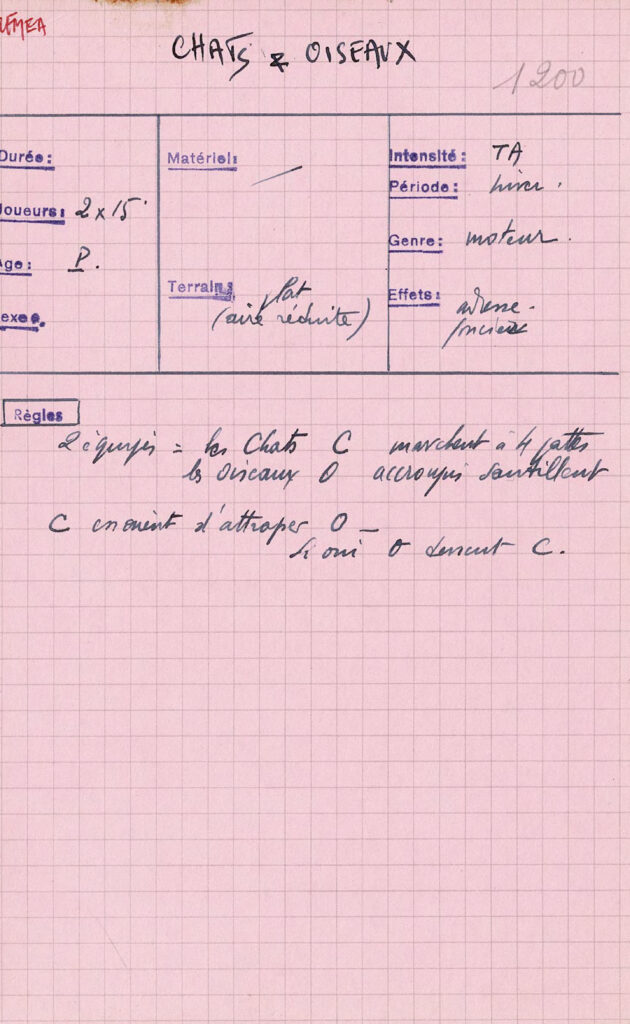 CHATS & OISEAUX
1200
Durée:
Joueurs: 2 x 15
Age: P.
Sexe.
Matériel: —
Terrain: plat
(aire réduite)
Intensité: TA
Période: hiver.
Genre: moteur.
Effets: adresse.
foncier
Règles
2 équipes = les Chats C marchent à 4 pattes
les oiseaux O accroupis sautillent
C essaient d'attraper O —
Si oui O devient C.